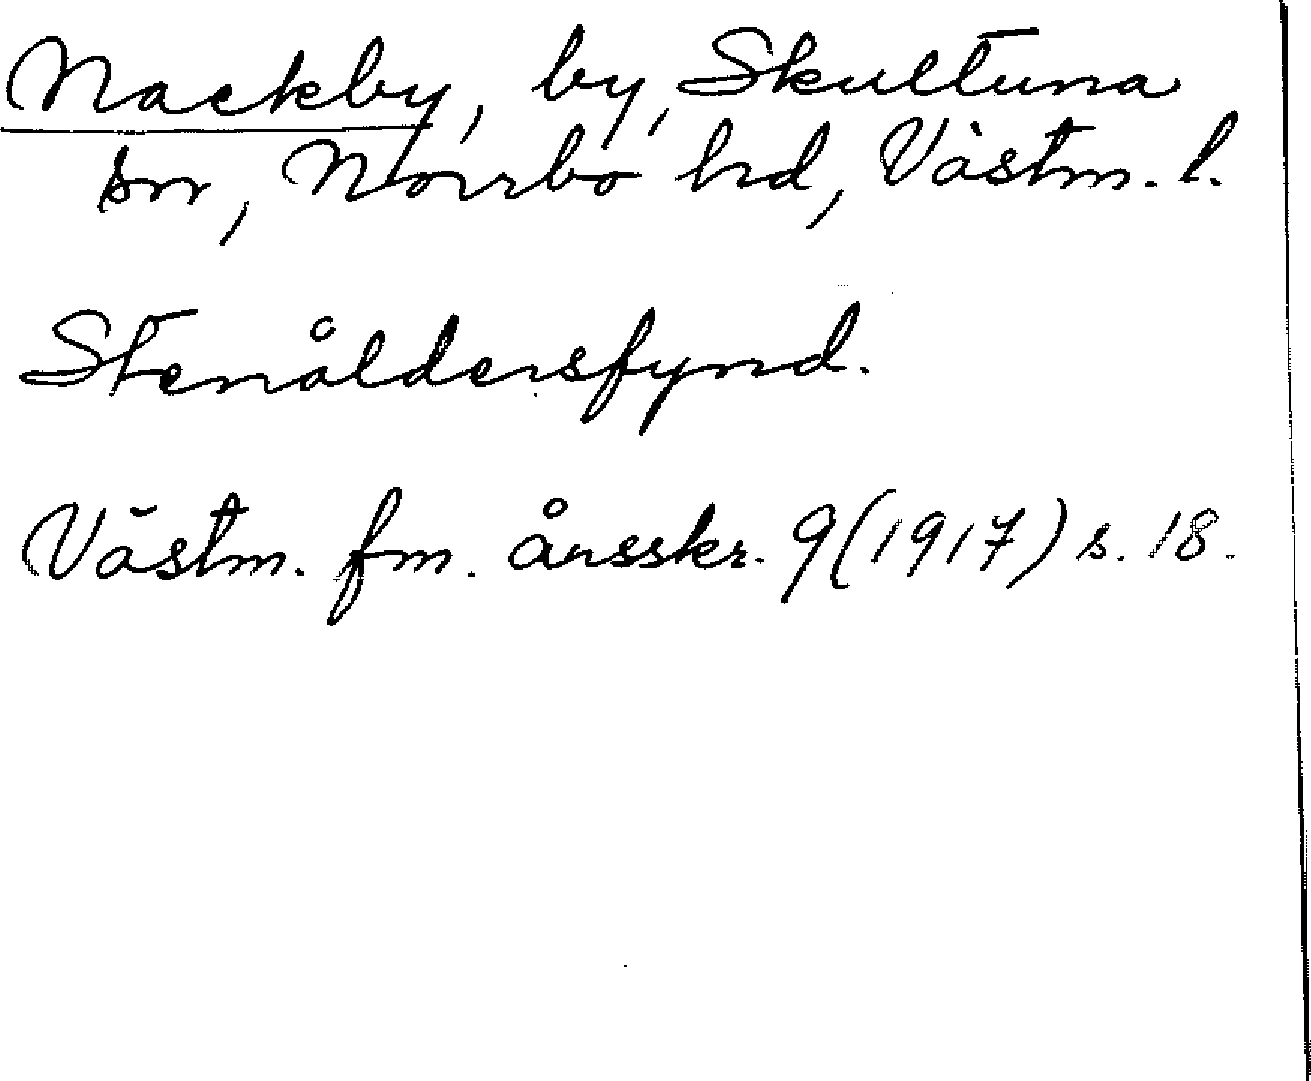 Nackby, by, Skultuna
sn, Norrbo hd, Västm. l.
Stenåldersfynd.
Västm. fm. årsskr. 9 (1917) s. 18.